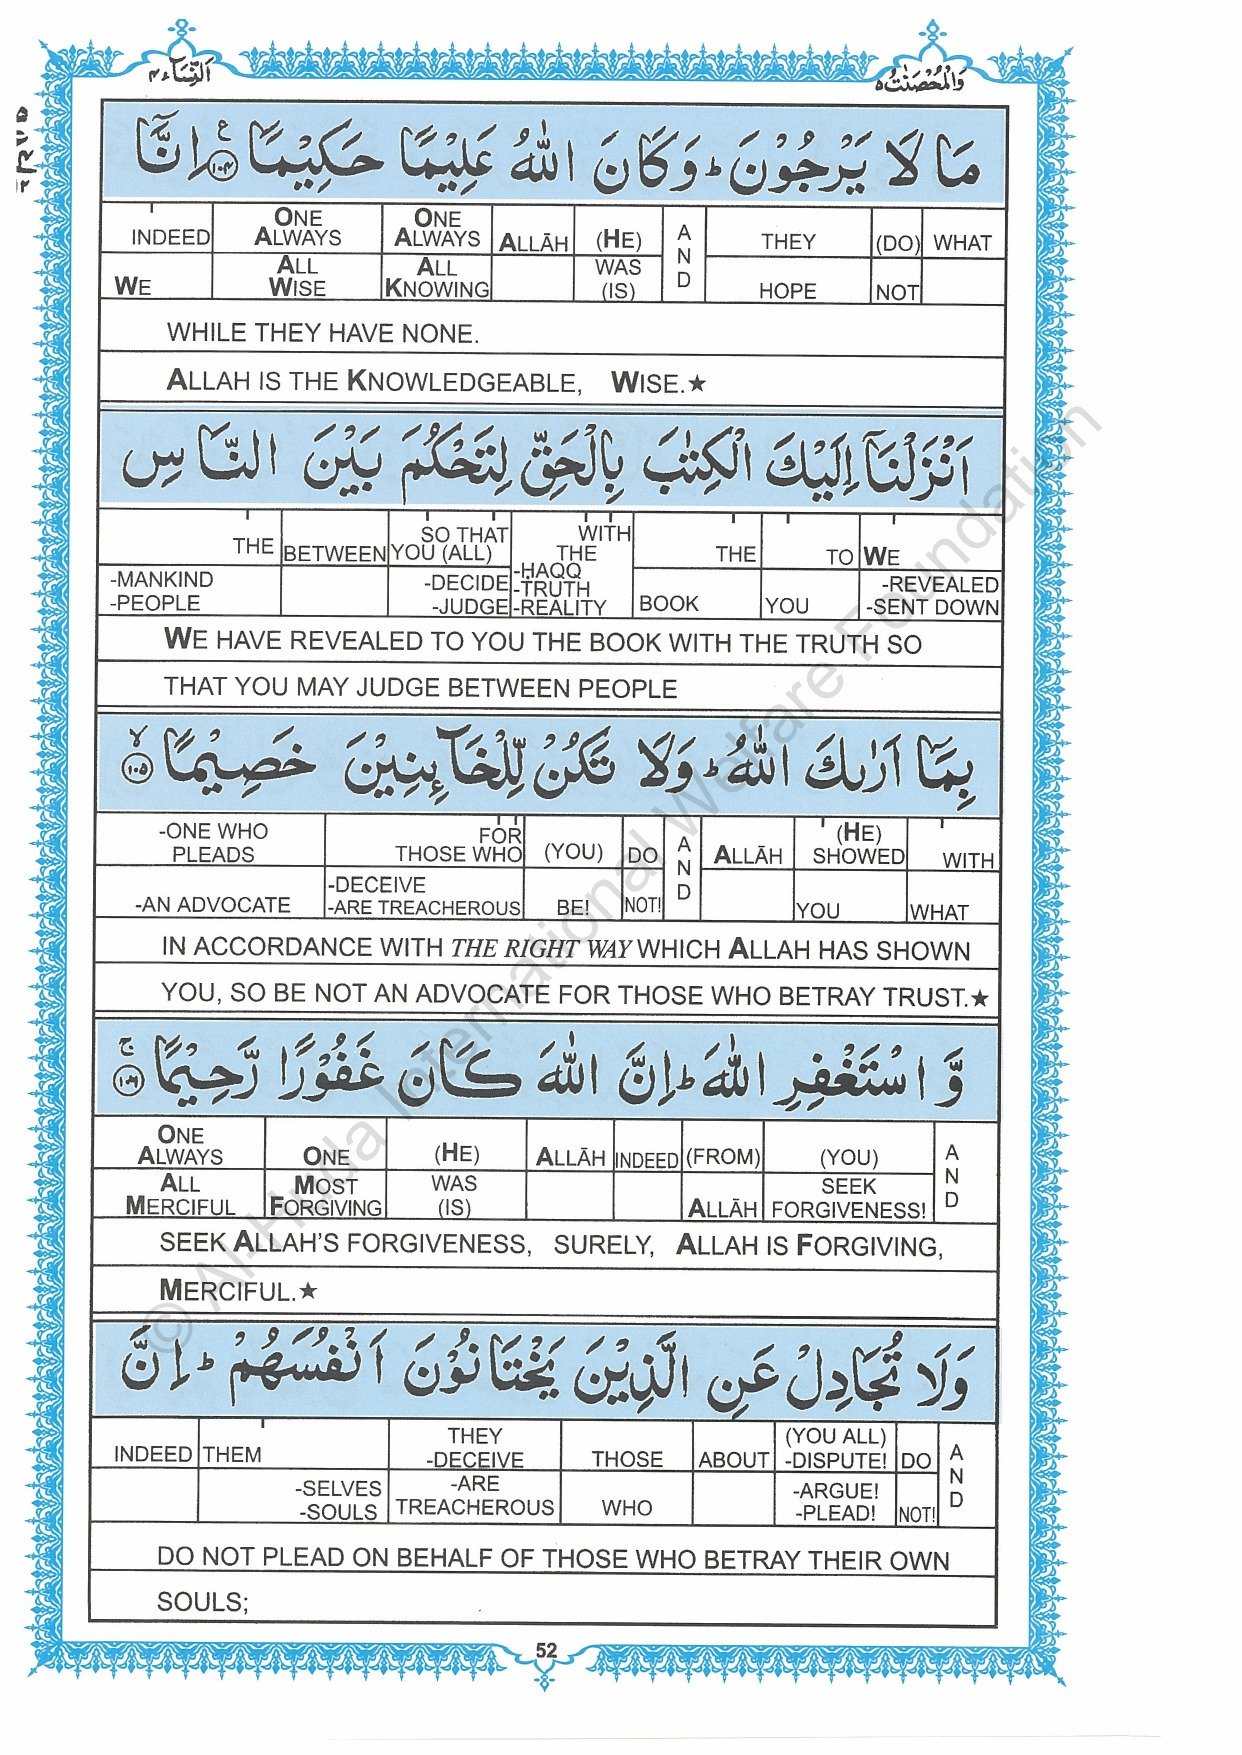 النِّسَآء ٤
وَالْمُحْصَنٰتُ ٥
مَا لَا يَرْجُوْنَ ؕ وَكَانَ اللّٰهُ عَلِيْمًا حَكِيْمًا ﴿۱۰۴﴾ ع اِنَّاۤ
INDEED ONE ALWAYS ONE ALWAYS ALLĀH (HE) AND THEY (DO) WHAT
WE ALL WISE ALL KNOWING WAS (IS) HOPE NOT
WHILE THEY HAVE NONE.
ALLAH IS THE KNOWLEDGEABLE, WISE.★
اَنْزَلْنَاۤ اِلَيْكَ الْكِتٰبَ بِالْحَقِّ لِتَحْكُمَ بَيْنَ النَّاسِ
THE BETWEEN SO THAT YOU (ALL) WITH THE THE TO WE
-MANKIND -PEOPLE -DECIDE -JUDGE -ḤAQQ -TRUTH -REALITY BOOK YOU -REVEALED -SENT DOWN
WE HAVE REVEALED TO YOU THE BOOK WITH THE TRUTH SO
THAT YOU MAY JUDGE BETWEEN PEOPLE
بِمَاۤ اَرٰىكَ اللّٰهُ ؕ وَلَا تَكُنْ لِّلْخَآئِنِيْنَ خَصِيْمًا ﴿۱۰۵﴾ ۙ
-ONE WHO PLEADS FOR THOSE WHO (YOU) DO AND ALLĀH (HE) SHOWED WITH
-AN ADVOCATE -DECEIVE -ARE TREACHEROUS BE! NOT! YOU WHAT
IN ACCORDANCE WITH THE RIGHT WAY WHICH ALLAH HAS SHOWN
YOU, SO BE NOT AN ADVOCATE FOR THOSE WHO BETRAY TRUST.★
وَّ اسْتَغْفِرِ اللّٰهَ ؕ اِنَّ اللّٰهَ كَانَ غَفُوْرًا رَّحِيْمًا ﴿۱۰۶﴾ ۚ
ONE ALWAYS ONE (HE) ALLĀH INDEED (FROM) (YOU) AND
ALL MERCIFUL MOST FORGIVING WAS (IS) ALLĀH SEEK FORGIVENESS!
SEEK ALLAH'S FORGIVENESS, SURELY, ALLAH IS FORGIVING,
MERCIFUL.★
وَلَا تُجَادِلْ عَنِ الَّذِيْنَ يَخْتَانُوْنَ اَنْفُسَهُمْ ؕ اِنَّ
INDEED THEM THEY -DECEIVE THOSE ABOUT (YOU ALL) -DISPUTE! DO AND
-SELVES -SOULS -ARE TREACHEROUS WHO -ARGUE! -PLEAD! NOT!
DO NOT PLEAD ON BEHALF OF THOSE WHO BETRAY THEIR OWN
SOULS;
52
© Al-Huda International Welfare Foundation